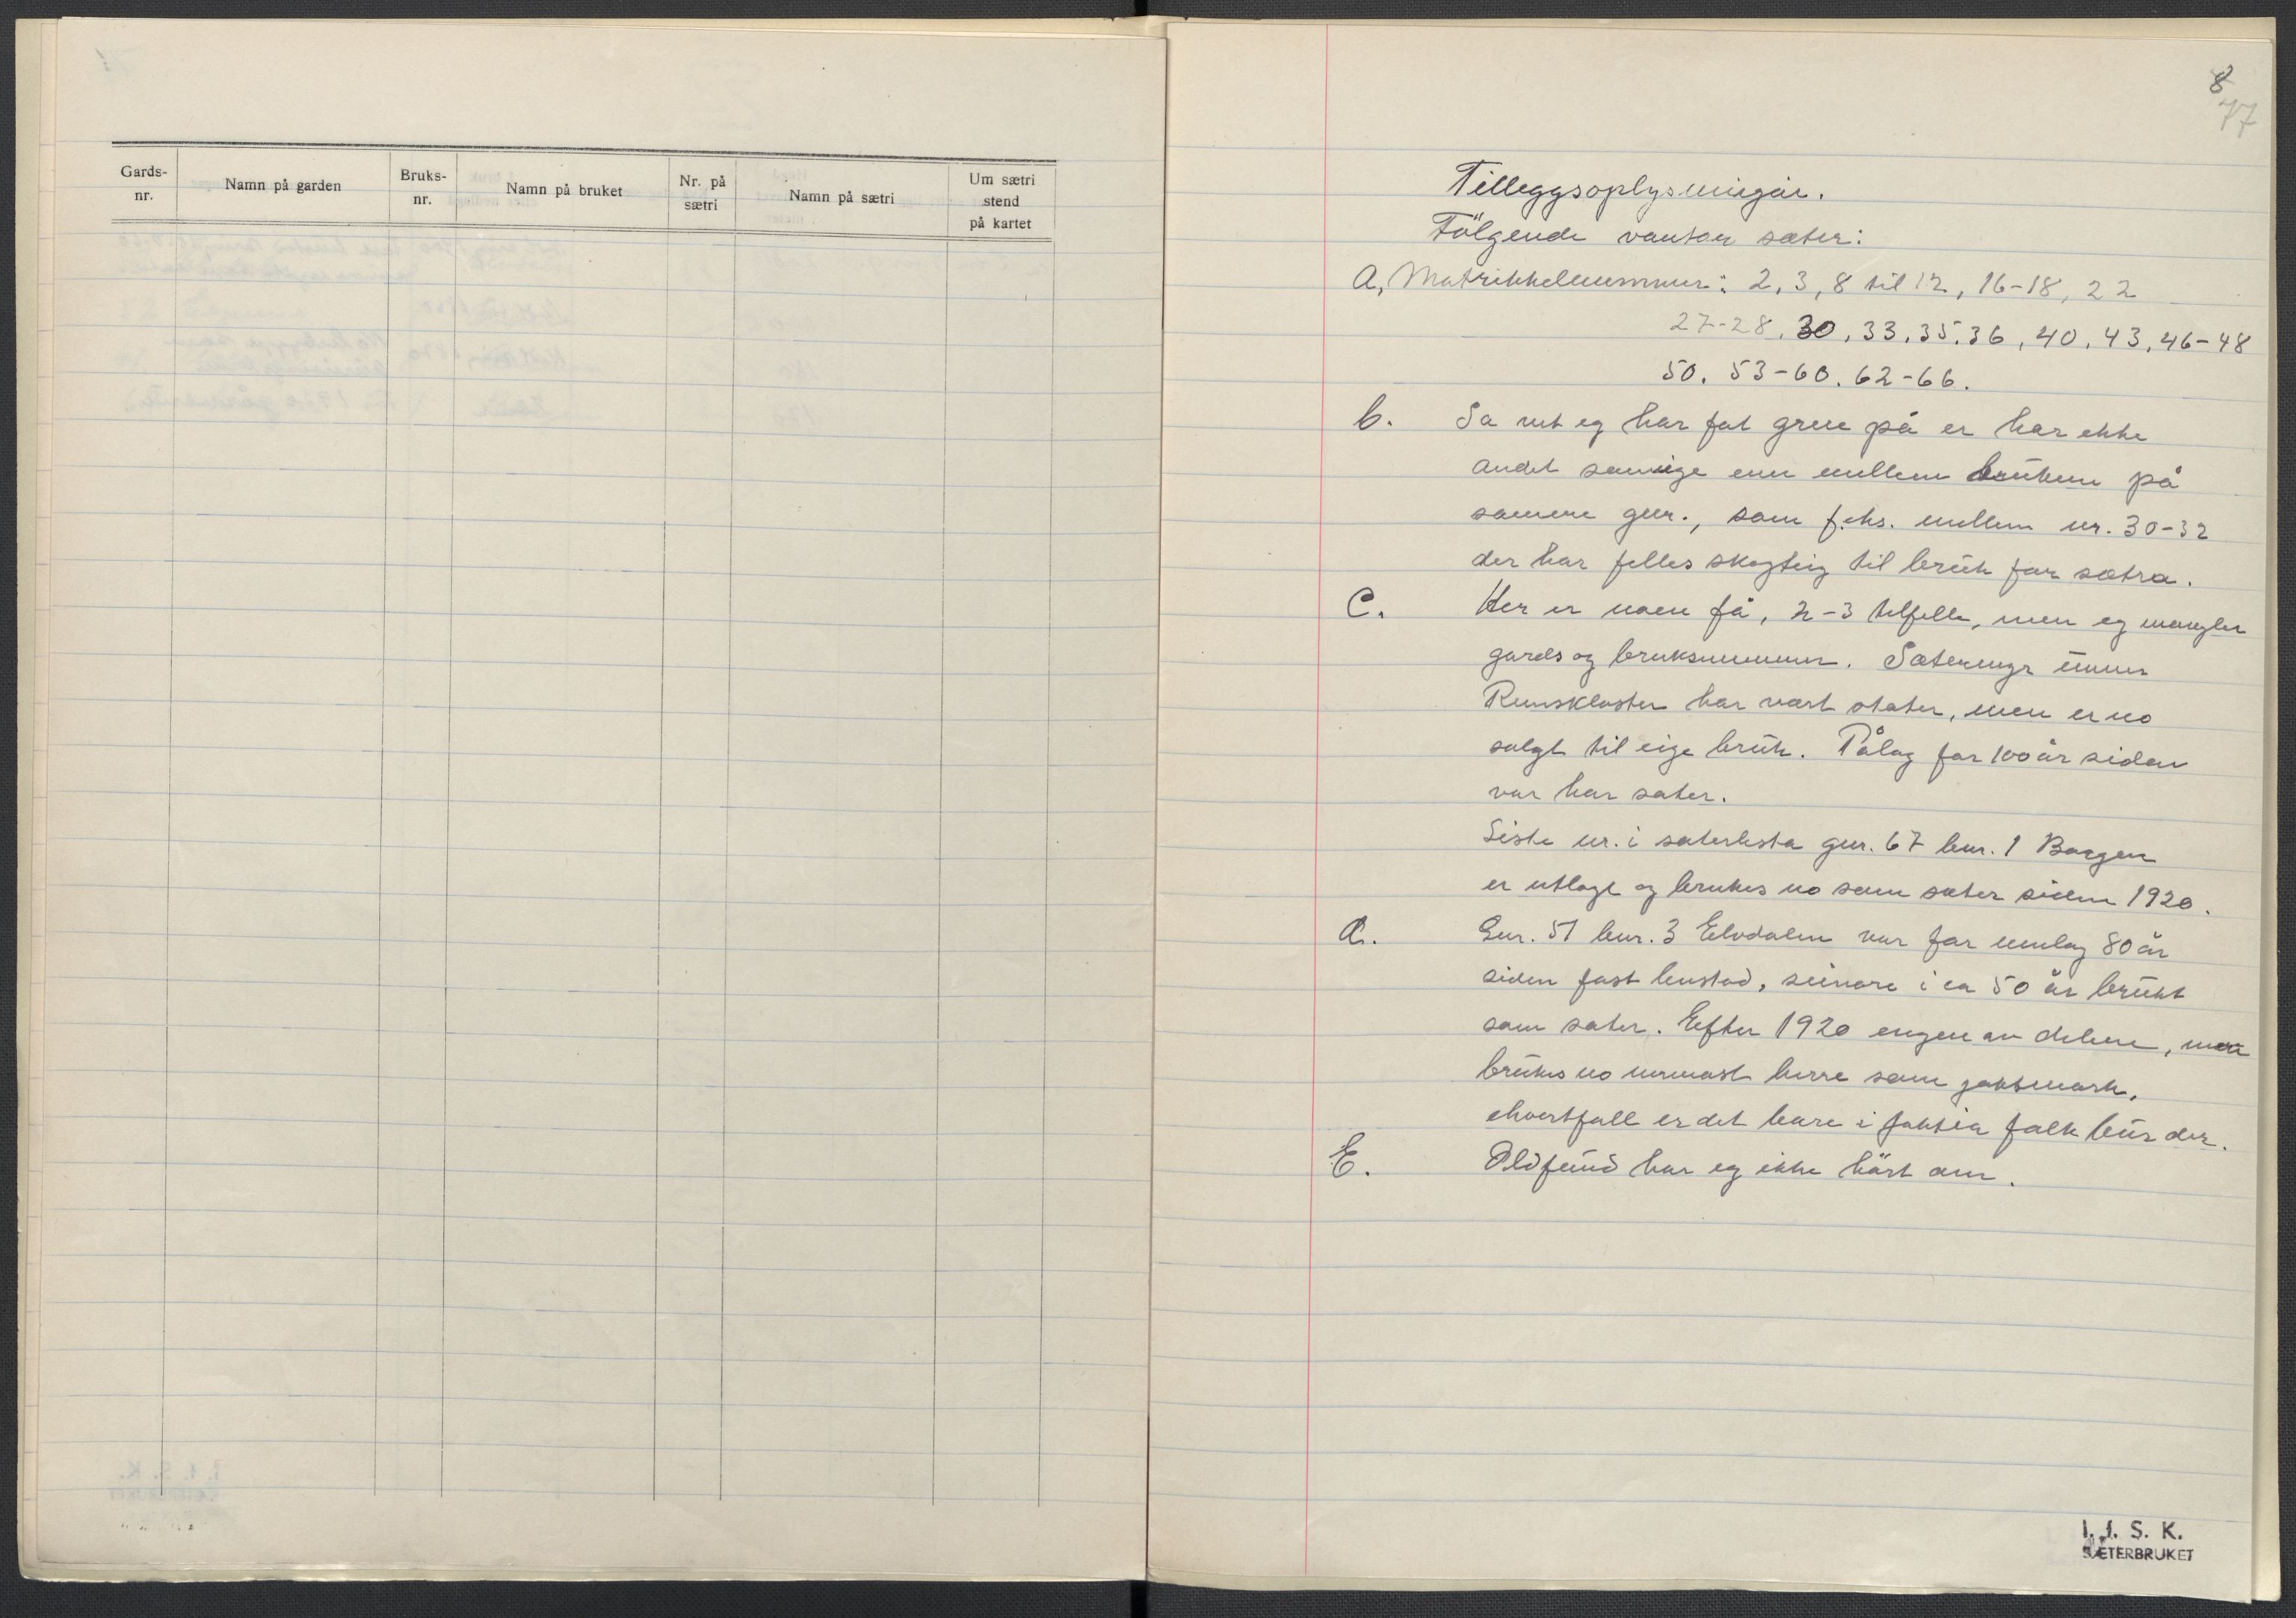 Gards-
nr.
Namn på garden
Bruks-
nr.
Namn på bruket
Nr. på
sætri
Namn på sætri
Um sætri
stend
på kartet
8
77
Tilleggsoplysningar.
Fölgende vantar sæter:
A, Matrikkelnummer: 2, 3, 8 til 12, 16-18, 22
27-28, 30, 33, 35, 36, 40, 43, 46-48
50. 53-60. 62-66.
b. Sa vit eg har fat greie på er har ekke
andet samige enn mellem brükene på
samme gnr., som f.eks. mellem nr. 30-32
der har felles skogteig til brük for sætra.
C. Her er noen få, 2-3 tilfelle, men eg mangler
gards og bruksnummer. Sæterenga
har vært sæter, men er no
solgt til eige brük. Pålag for 100 år siden
var har sæter.
Siste nr. i sæterlista gnr. 67 bnr. 1 Borgen
er utlagt og brukes no som sæter siden 1920.
d. Gnr. 51 bnr. 3 Elvdalen var for umlag 80 år
siden fast bustad, seinare i ca 50 år brükt
som sæter. Efter 1920 engen av delene, men
brükes no nermast berre som jaktmark,
ehvertfall er det bare i jaktia folk bür der.
E. Oldfünd har eg ikke hört om.
I. f. S. K.
SÆTERBRUKET